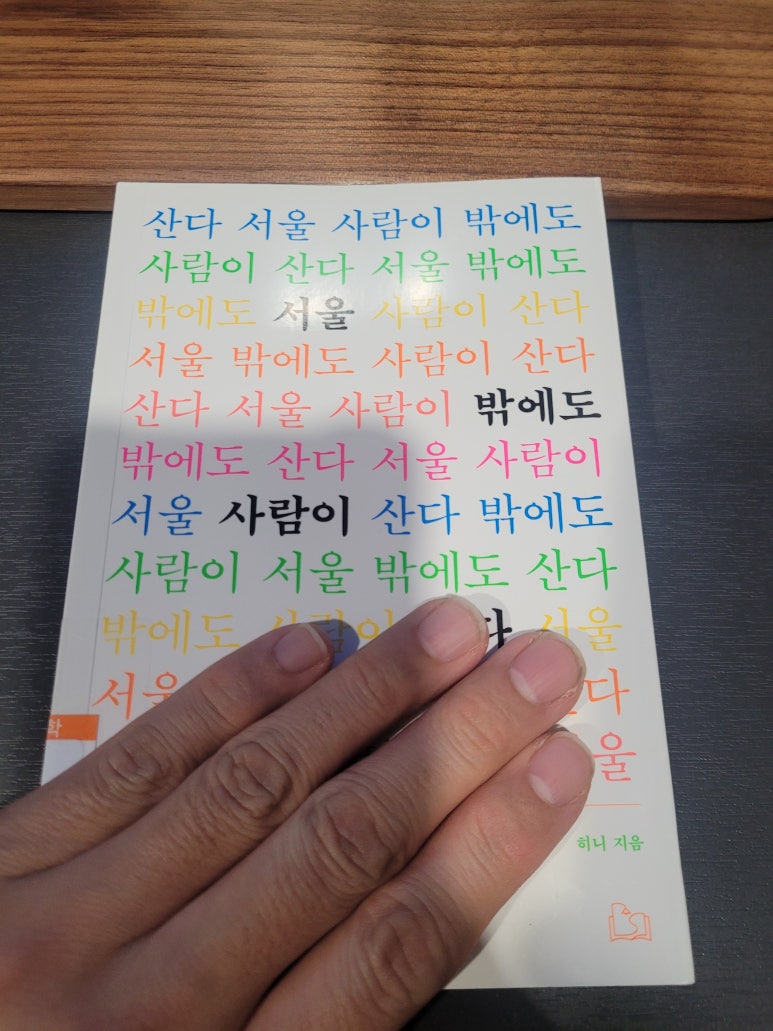 산다 서울 사람이 밖에도
사람이 산다 서울 밖에도
밖에도 서울 사람이 산다
서울 밖에도 사람이 산다
산다 서울 사람이 밖에도
밖에도 산다 서울 사람이
서울 사람이 산다 밖에도
사람이 서울 밖에도 산다
밖에도 사람이 서울
서울
히니 지음